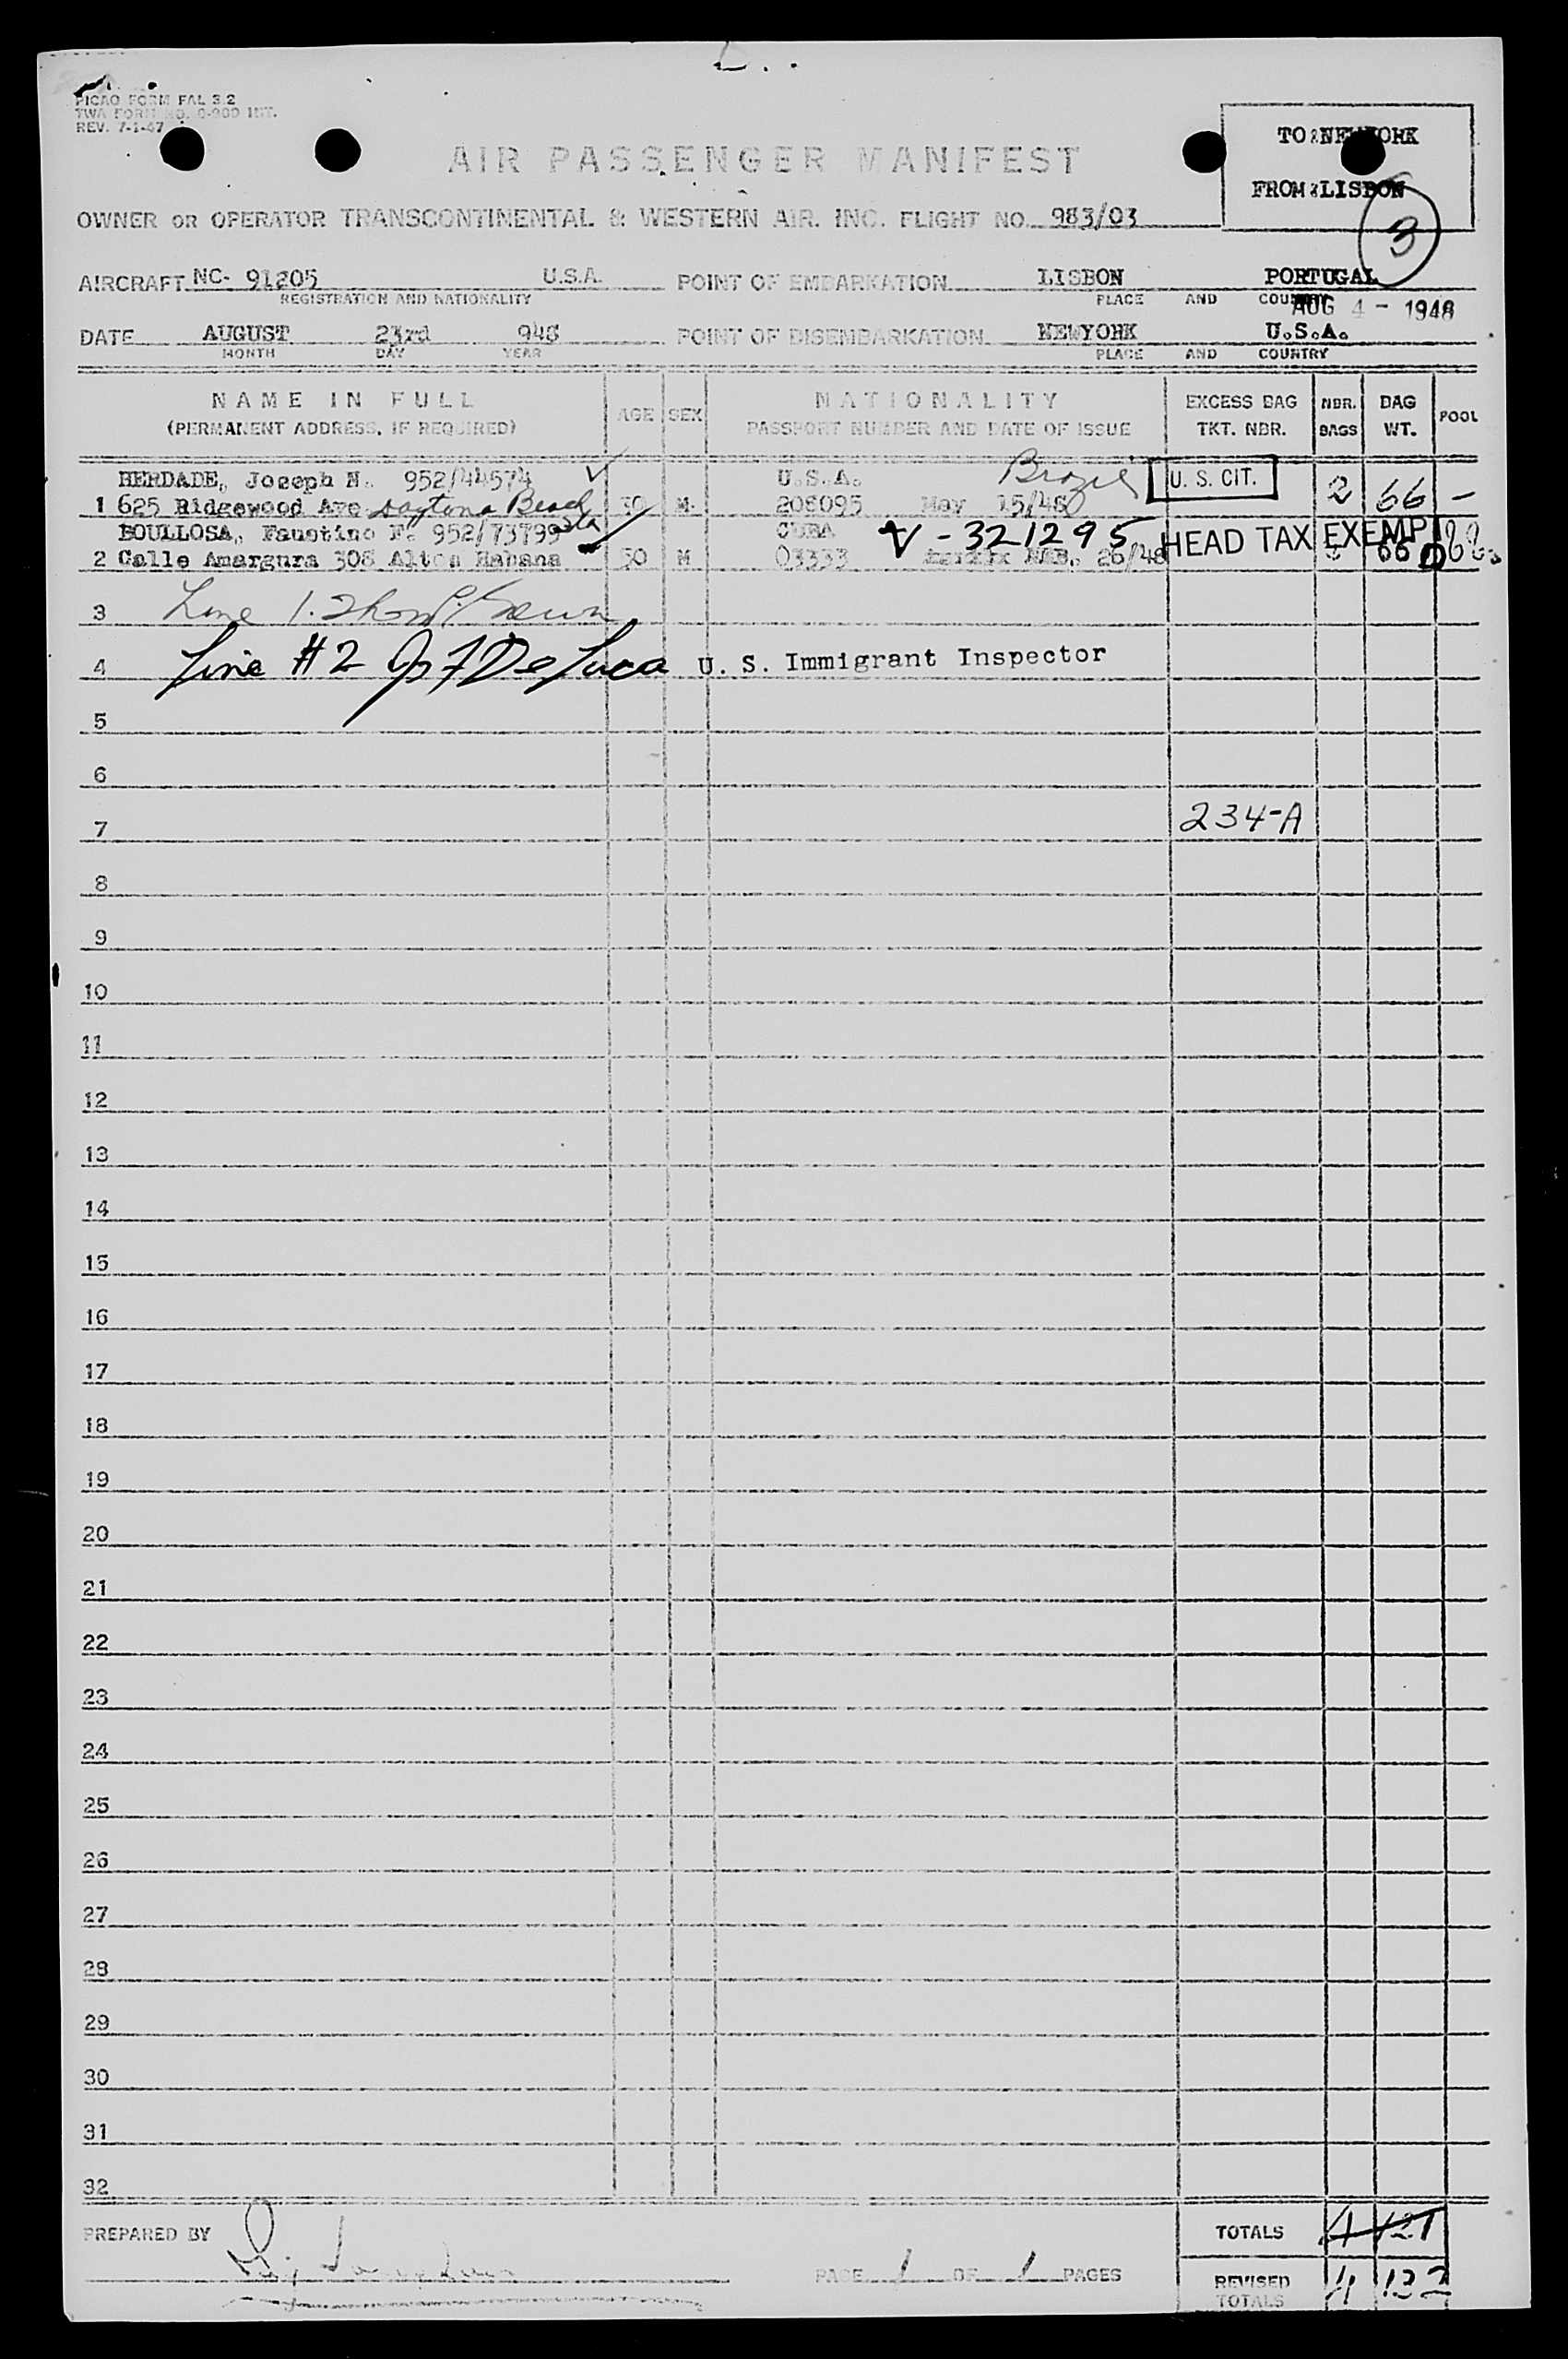 PICAO FORM FAL 3.2
TWA FORM NO. 0-900 INT.
REV. 7-1-47
AIR PASSENGER MANIFEST
TO: NEWYORK
FROM: LISBON
3
OWNER OR OPERATOR TRANSCONTINENTAL & WESTERN AIR. INC. FLIGHT NO. 983/03
AIRCRAFT NC- 91205 U.S.A. POINT OF EMBARKATION LISBON PORTUGAL
REGISTRATION AND NATIONALITY PLACE AND COUNTRY
AUG 4 - 1948
DATE AUGUST 23rd 948 POINT OF DISEMBARKATION NEWYORK U.S.A.
MONTH DAY YEAR PLACE AND COUNTRY
NAME IN FULL AGE SEX NATIONALITY EXCESS BAG NBR. BAG POOL
(PERMANENT ADDRESS, IF REQUIRED) PASSPORT NUMBER AND DATE OF ISSUE TKT. NBR. BAGS WT.
HERDADE, Joseph N. 952/44574 U.S.A. Brazil U. S. CIT.
1 625 Ridgewood Ave Daytona Beach 30 M 206095 May 15/48 2 66 -
BOULLOSA, Faustino F. 952/73799 CUBA V - 321295 HEAD TAX EXEMPT
2 Calle Amargura 308 Altos Habana 50 M 03333 26/48 66
3 Line 1.
4 Line #2 De Luca U. S. Immigrant Inspector
5
6
7 234-A
8
9
10
11
12
13
14
15
16
17
18
19
20
21
22
23
24
25
26
27
28
29
30
31
32
PREPARED BY TOTALS 4 121
PAGE 1 OF 1 PAGES REVISED TOTALS 4 132